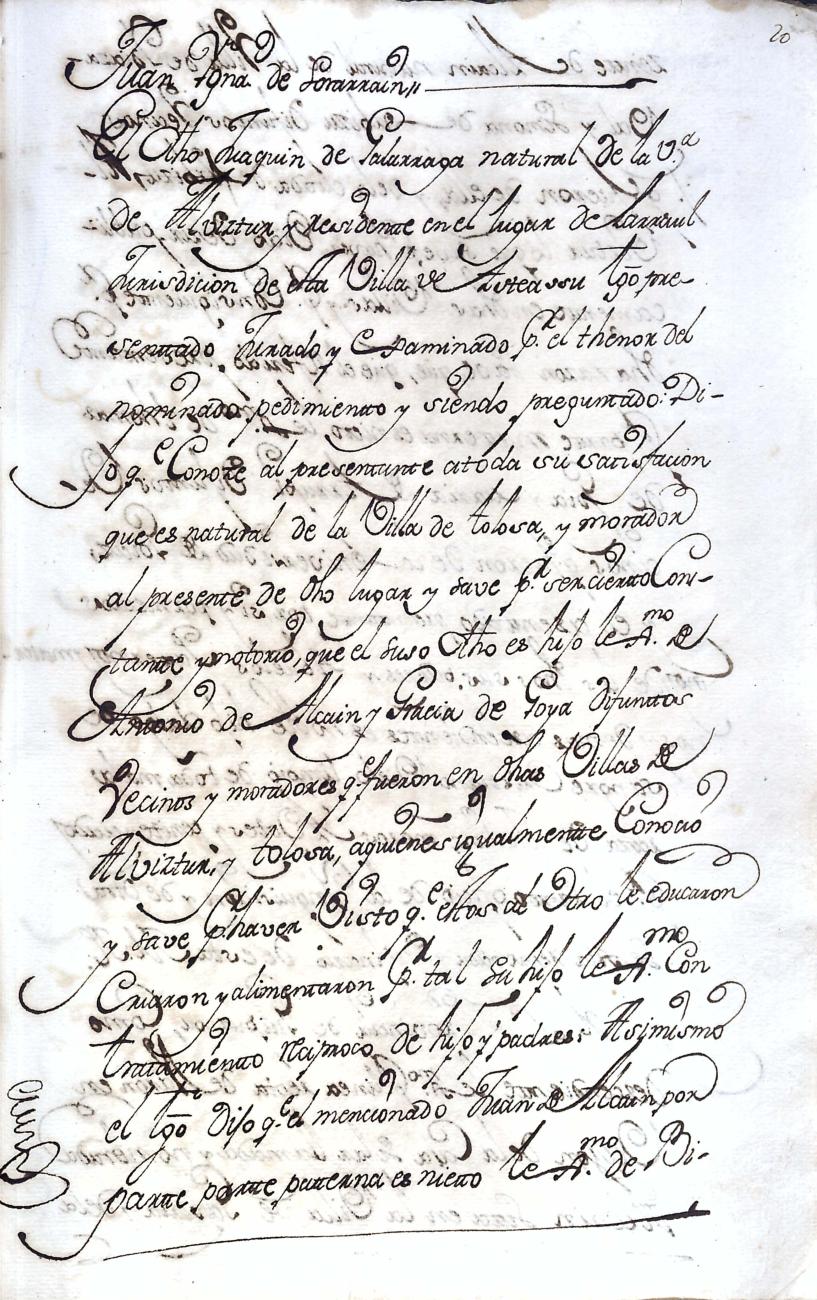 20
Juan Igna.º de Lorarrain
El dho Juaquin de Galarraga natural de la V.ª
de Alviztur y residente en el lugar de Larraul
Jurisdicion de esta Villa de Asteasu tgo pre-
sentado Jurado y examinado p.r el thenor del
nominado pedimiento y siendo preguntado: Di-
jo q.e Conoze al presentante atoda su satisfacion
que es natural de la Villa de tolosa, y morador
al presente de dho lugar y save p.r ser cierto Cons-
tante y notorio, que el suso dho es hijo le A.mo de
Antonio de Alcain y Gracia de Goya difuntos
Vecinos y moradores q.e fueron en dhas Villas de
Alviztur, y tolosa, aquienes igualmente Conocio
y save p.r haver Visto q.e estos al otro le educaron
Criaron y alimentaron p.r tal su hijo le A.mo Con
tratamiento reciproco de hijo y padres: Asimismo
el tgo Dijo q.e el mencionado Juan de Alcain por
parte parte paterna es nieto le A.mo de Bi-